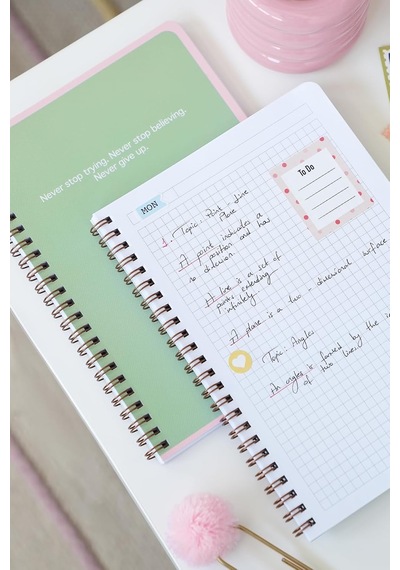 Never stop trying. Never stop believing.
Never give up.
MON
To Do
1. Topic: Point, Line
Plane
A point indicates a
position and has
no dimension.
A line is a set of
points extending
infinitely.
A plane is a two - dimensional surface
Topic: Angles
An angle is formed by the
of two lines.